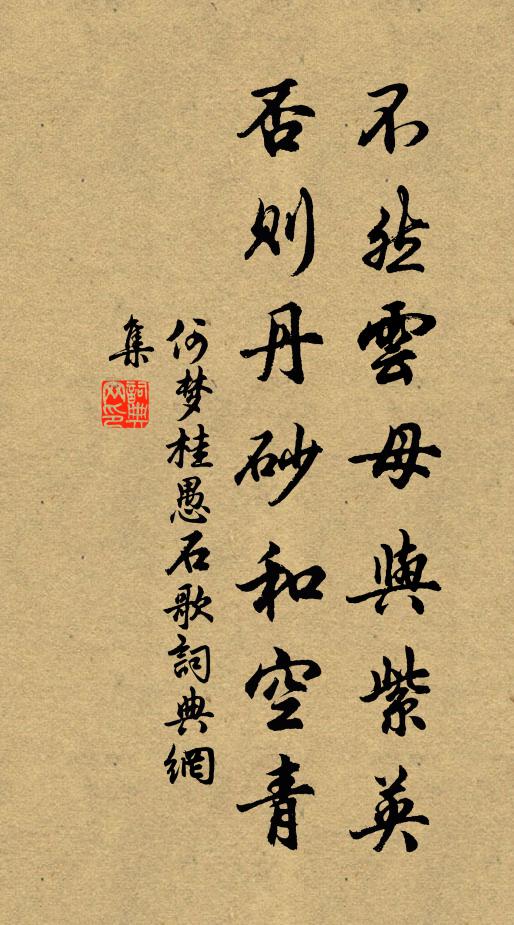 不然雲母與紫英
否則丹砂和空青
何梦桂愚石歌詞典網
集
詞典网印